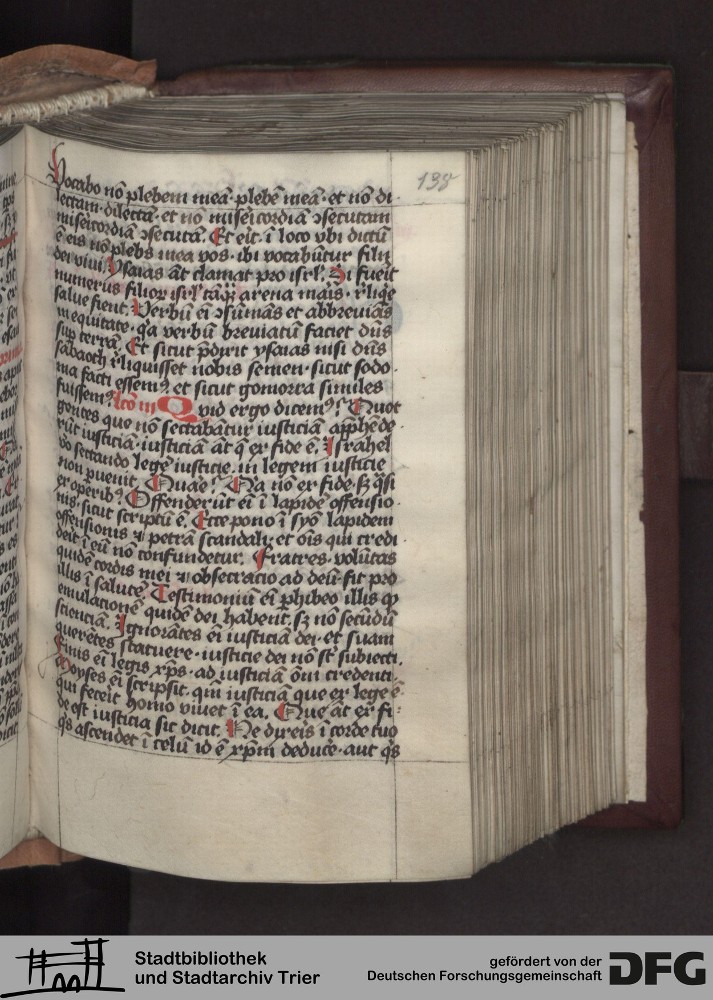 138
Vocabo nō plebem meā· plebē meā· et nō di-
lectam· dilectā· et nō misericordiā ↄsecutam
misericordiā ↄsecutā. Et eit· ī loco vbi dictū
ē eis nō plebs mea vos· ibi vocabūtur filij
dei viui. ysaias āt clamat pro isrl̄. Si fueīt
numerus filioꝝ isrl̄ tāqꝫ arena maīs· rͥliqe
salue fient. Verbū eī ↄsūmās et abbreuiās
in equitate· qͥa verbū breuiatū faciet dn̄s
suꝑ terrā. Et sicut p̄dixit ysaias nisi dn̄s
sabaoth rͥliquisset nobis semen· sicut sodo-
ma facti essemꝰ et sicut gomorra similes
fuissemꝰ lc̄o iii Quid ergo dicemꝰ? Quot
gentes que nō sectabātur iusticiā appͥhēde-
rūt iusticiā· iusticiā āt q̄ ex fide ē. Israhel
vͦ sectando legē iusticie· in legem iusticie
non puenit. Quare? Qa nō ex fide· sꝫ qͣsi
ex operibꝰ. Offenderūt eī ī lapidē offensio-
nis· sicut scriptū ē. Ecce pono ī syō lapidem
offensionis ⁊ petrā scandali· et oīs qui credi-
derit ī eū nō confundetur. Fratres· volūtas
quidē cordis mei ⁊ obsecracio ad deū· fit pro
illis ī salutē. Testimoniū eī phibeo illis qꝫ
emulacionē quidē dei habent· sꝫ nō secūdū
scienciā. Ignorātes eī iusticiā dei· et suam
querētes statuere· iusticie dei nō st̄ subiecti.
Finis eī legis xp̄s· ad iusticiā om̄i credenti.
Moyses eī scripsit· qm̄ iusticiā que ex lege ē
qui fecerit homo viuet ī ea. Que āt ex fi-
de est iusticia sic dicit. Ne dixeis ī corde tuo
qͥs ascendet ī celū id ē xp̄m deducē· aut qͥs
Stadtbibliothek
und Stadtarchiv Trier
gefördert von der
Deutschen Forschungsgemeinschaft
DFG